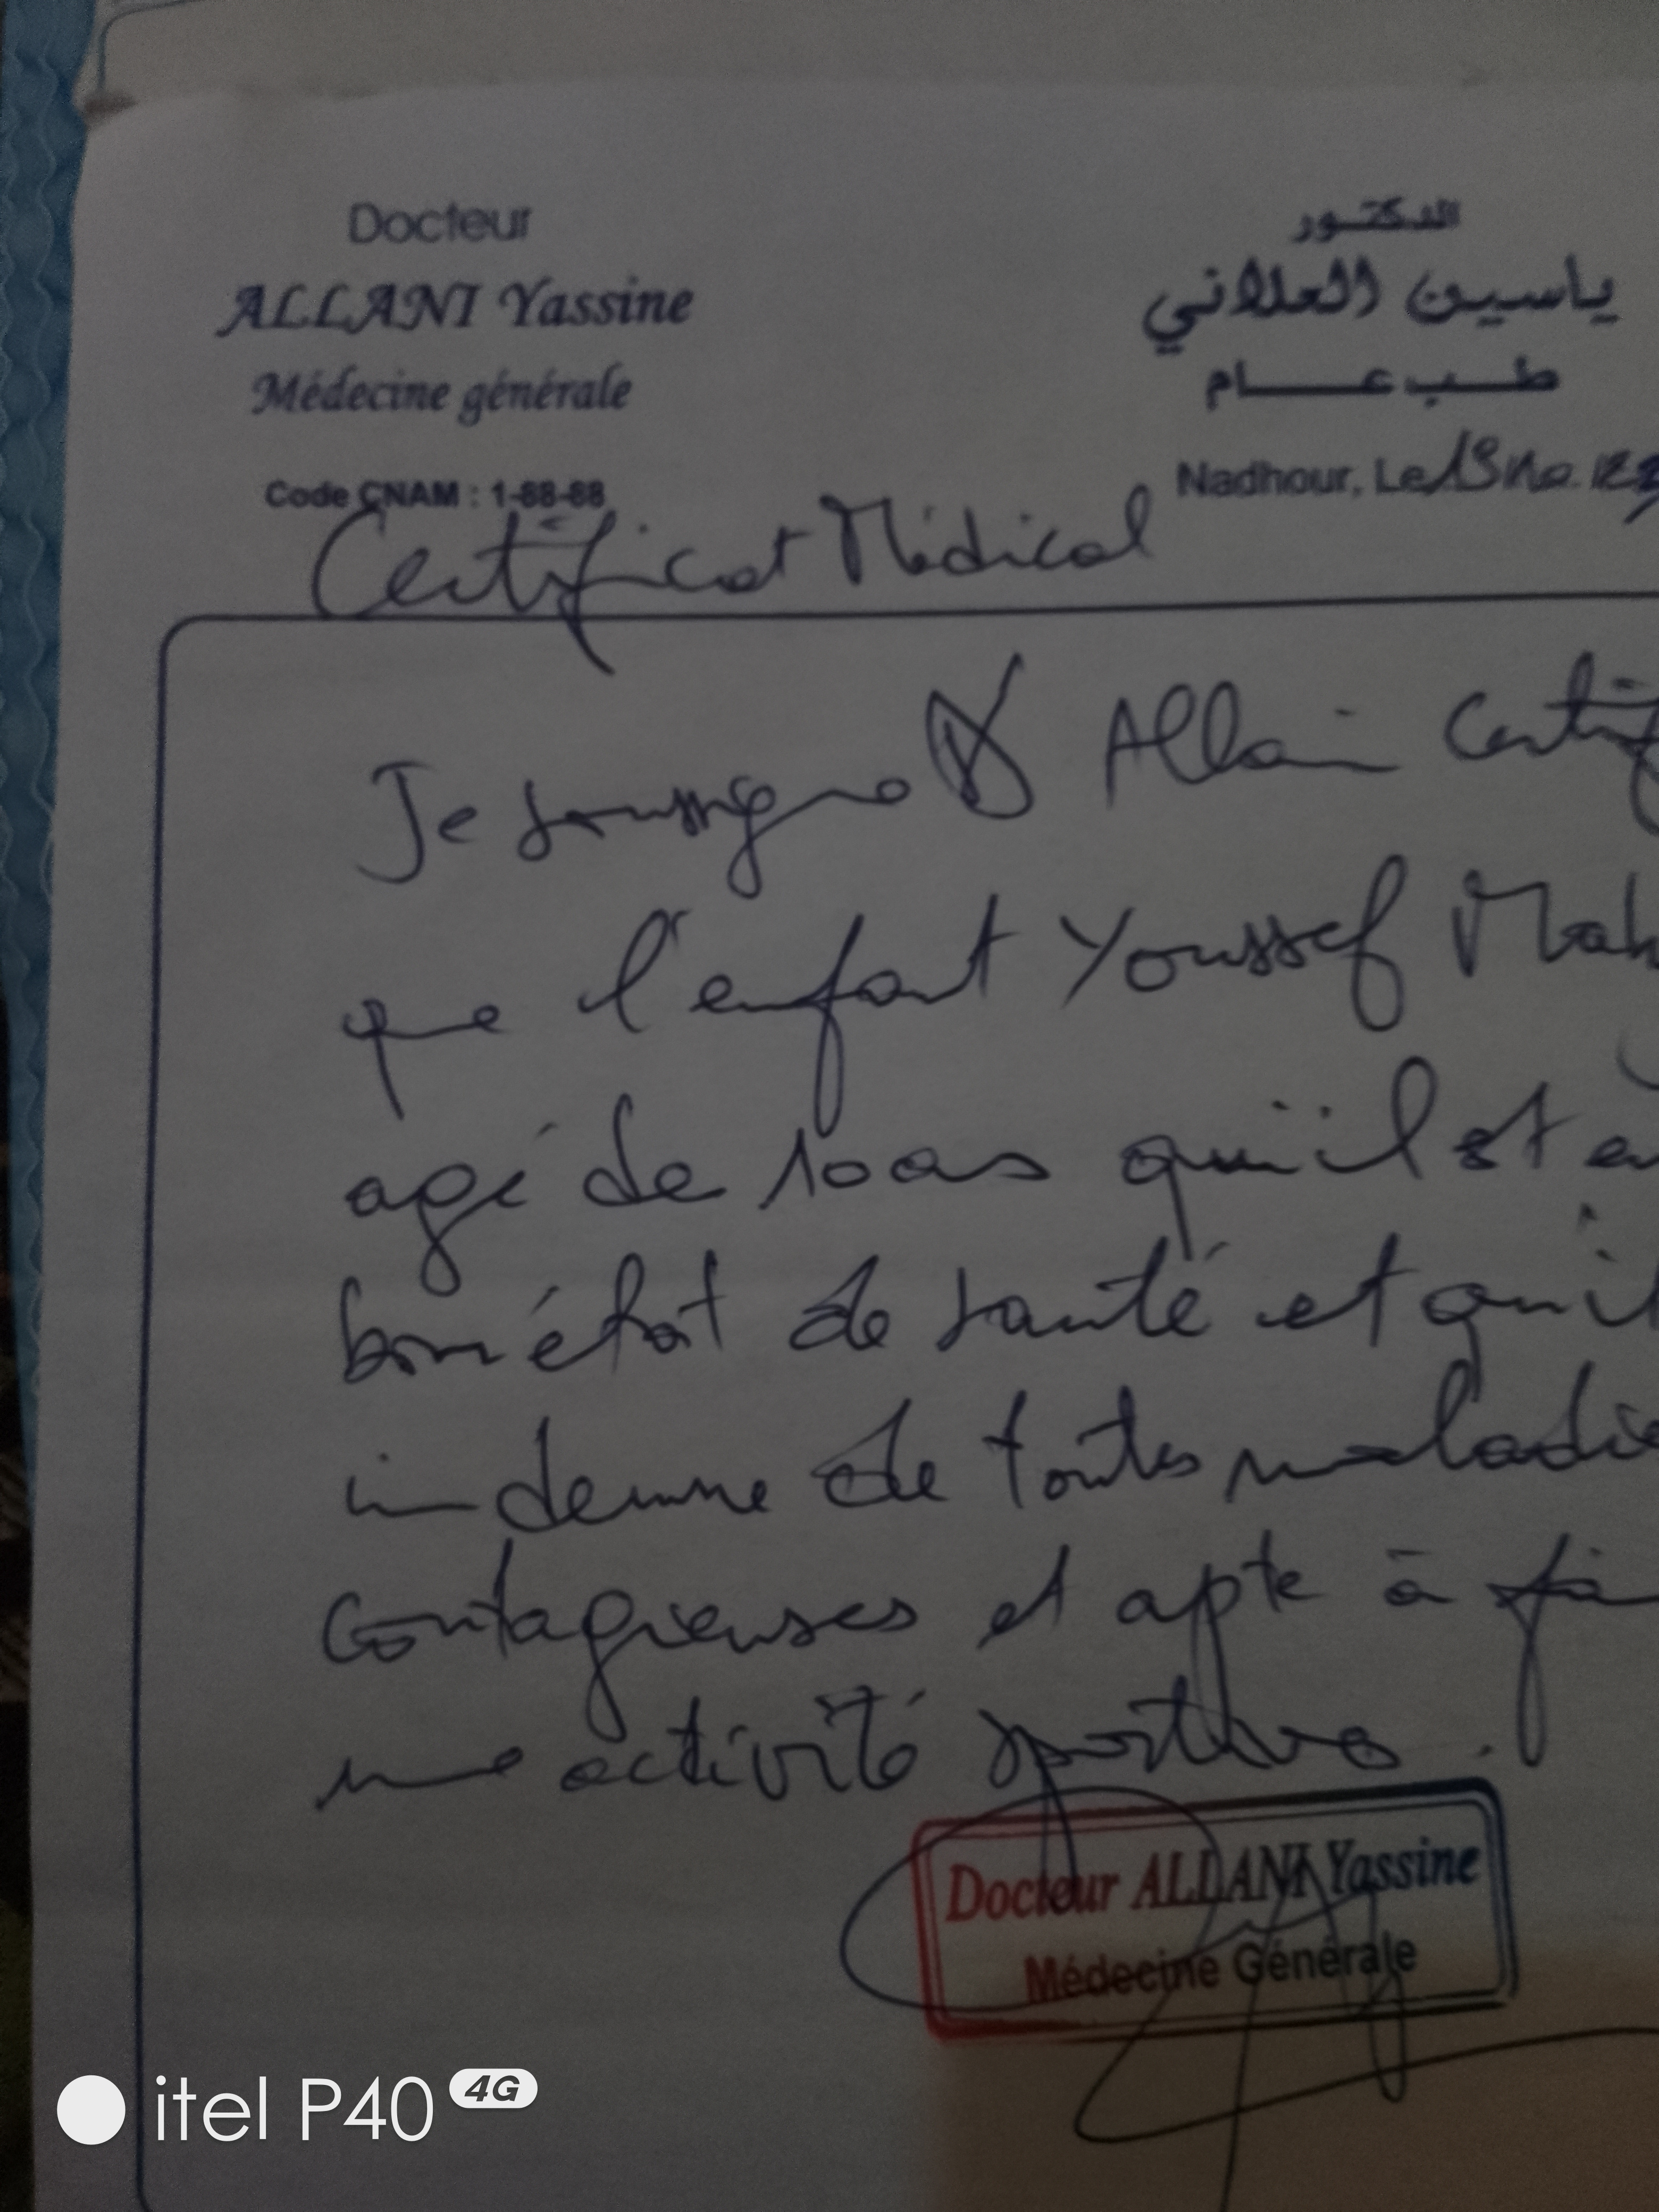 Docteur
ALLANI Yassine
Médecine générale
Code CNAM : 1-88-88
الدكتور
ياسين العلاني
طب عام
Nadhour, Le 13
Certificat Médical
Je soussigné Dr Allani Certif
que l'enfant Youssef Mah
agé de 10 ans qu'il est en
bon état de santé et qu'il
indemne de toutes maladie
contagieuses et apte à fai
une activité sportive.
Docteur ALLANI Yassine
Médecine Générale
itel P40 4G